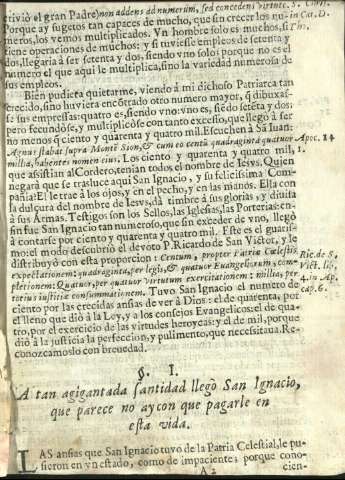 tivió el gran Padre) non addens ad numerum, sed concedens virtute. S. Chri.
Porque ay sugetos tan capaces de mucho, que sin crecer los nu- in Ca. D.
meros, los vemos multiplicados. Vn hombre solo es muchos, si
tiene operaciones de muchos: y si tuviesse empleos de setenta y
dos, llegaria à ser setenta y dos, siendo vno solo: porque no es el
numero el que aqui le multiplica, sino la variedad numerosa de
sus empleos.
Bien pudiera quietarme, viendo à mi dichoso Patriarca tan
crecido, sino huviera encõtrado otro numero mayor, q̃ dibuxas-
se sus empressas: quatro es, siendo vno: vno es, siẽdo setẽta y dos:
pero fecundóse, y multiplicóse con tanto excesso, que llegò à ser
no menos q̃ ciento y quarenta y quatro mil. Escuchen à Sã Iuan:
Agnus stabat supra Montẽ Sion, & cum eo centũ quadraginta quatuor Apoc. 14
millia, habentes nomen eius. Los ciento y quarenta y quatro mil, 1.
que assistian al Cordero, tenian todos el nombre de Iesvs. Quien
negarà que se trasluce aqui San Ignacio, y su felicissima Com-
pañia? El le trae à los ojos, y en el pecho, y en las manos. Ella con
la dulçura del nombre de Iesvs, dà timbre à sus glorias, y divisa
à sus Armas. Testigos son los Sellos, las Iglesias, las Porterias: en
fin fue San Ignacio tan numeroso, que sin exceder de vno, llegò
à contarse por ciento y quarenta y quatro mil. Este es el guaris-
mo: el modo descubriò el devoto P. Ricardo de San Victor, y le
distribuyò con esta proporcion: Centum, propter Patriæ Cælestis Ric. de S.
expectationem: quadraginta, per legis, & quatuor Evangeliorum, com- Vict. lib.
pletionem: Quatuor, per quatuor virtutum exercitationem: millia, per in Ap.
totius iustitiæ consummationem. Tuvo San Ignacio el numero de cap. 6.
ciento por las crecidas ansias de ver à Dios: el de quarenta, por
el lleno que diò à la Ley, y a los consejos Evangelicos: el de qua-
tro, por el exercicio de las virtudes heroycas: y el de mil, porque
diò à la justicia la perfeccion, y pulimento, que necessitaua. Re-
conozcamoslo con brevedad.
§. I.
A tan agigantada santidad llegò San Ignacio,
que parece no ay con que pagarle en
esta vida.
LAS ansias que San Ignacio tuvo de la Patria Celestial, le pu-
sieron en vn estado, como de impaciente; porque cono-
A 2 cien-